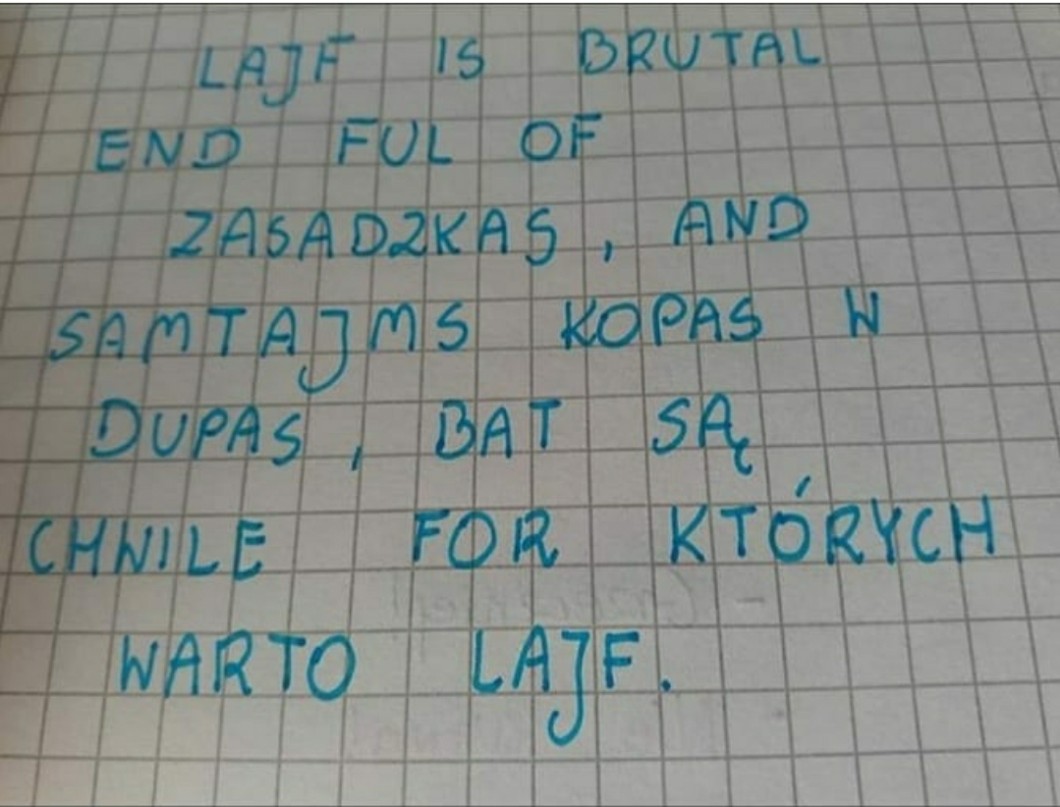 LAJF IS BRUTAL
END FUL OF
ZASADZKAS, AND
SAMTAJMS KOPAS W
DUPAS, BAT SĄ
CHWILE FOR KTÓRYCH
WARTO LAJF.